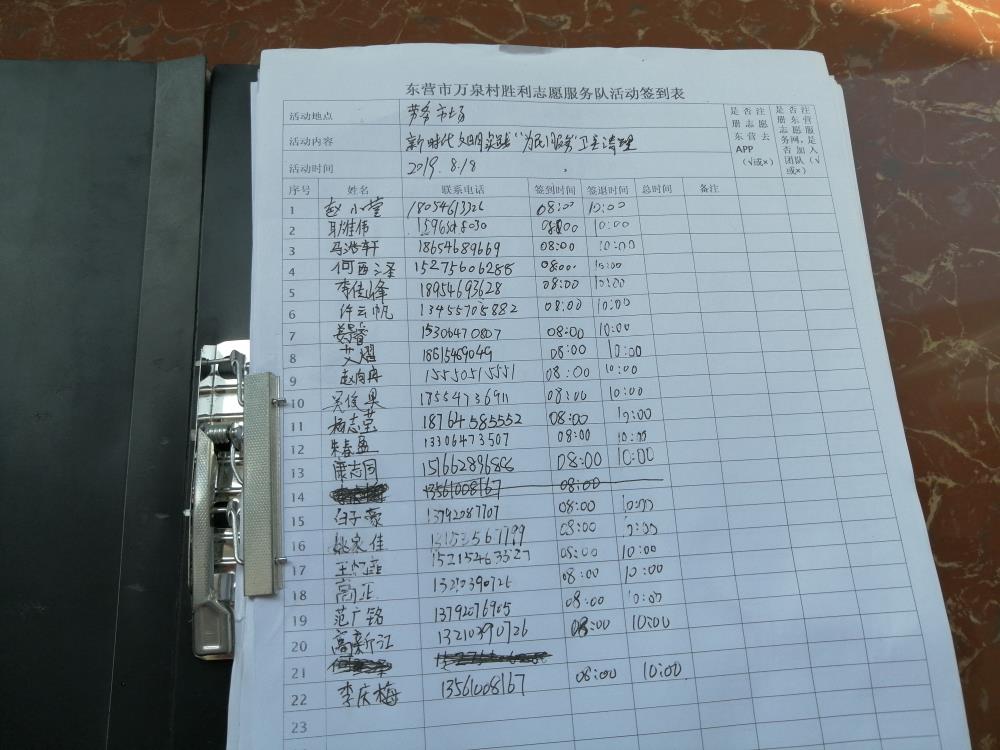 东营市万泉村胜利志愿服务队活动签到表
活动地点 劳务市场 是否注册志愿东营去APP（√或×） 是否注册东营志愿服务网，是否加入团队（√或×）
活动内容 新时代文明实践“为民服务”卫生清理
活动时间 2019.8.18
序号 姓名 联系电话 签到时间 签退时间 总时间 备注
1 赵小莹 18054613326 08:00 10:00
2 耿雄伟 08:00 10:00
3 马浩轩 18654689669 08:00 10:00
4 何西泽 15275606288 08:00 10:00
5 李佳峰 18954693628 08:00 10:00
6 许云帆 13455705882 08:00 10:00
7 15306470807 08:00 10:00
8 艾熠 18615469049 08:00 10:00
9 赵向冉 15550515551 08:00 10:00
10 吴俊昊 18554736911 08:00 10:00
11 杨志莹 18764585552 08:00 10:00
12 朱春盈 13306473507 08:00 10:00
13 康志同 15166289686 08:00 10:00
14 13561008167 08:00
15 白子豪 13792087707 08:00 10:00
16 姚家佳 08:00 10:00
17 15215463327 08:00 10:00
18 高正 08:00 10:00
19 范广铭 13792076905 08:00 10:00
20 高新江 13210390726 08:00 10:00
21
22 李庆梅 13561008167 08:00 10:00
23